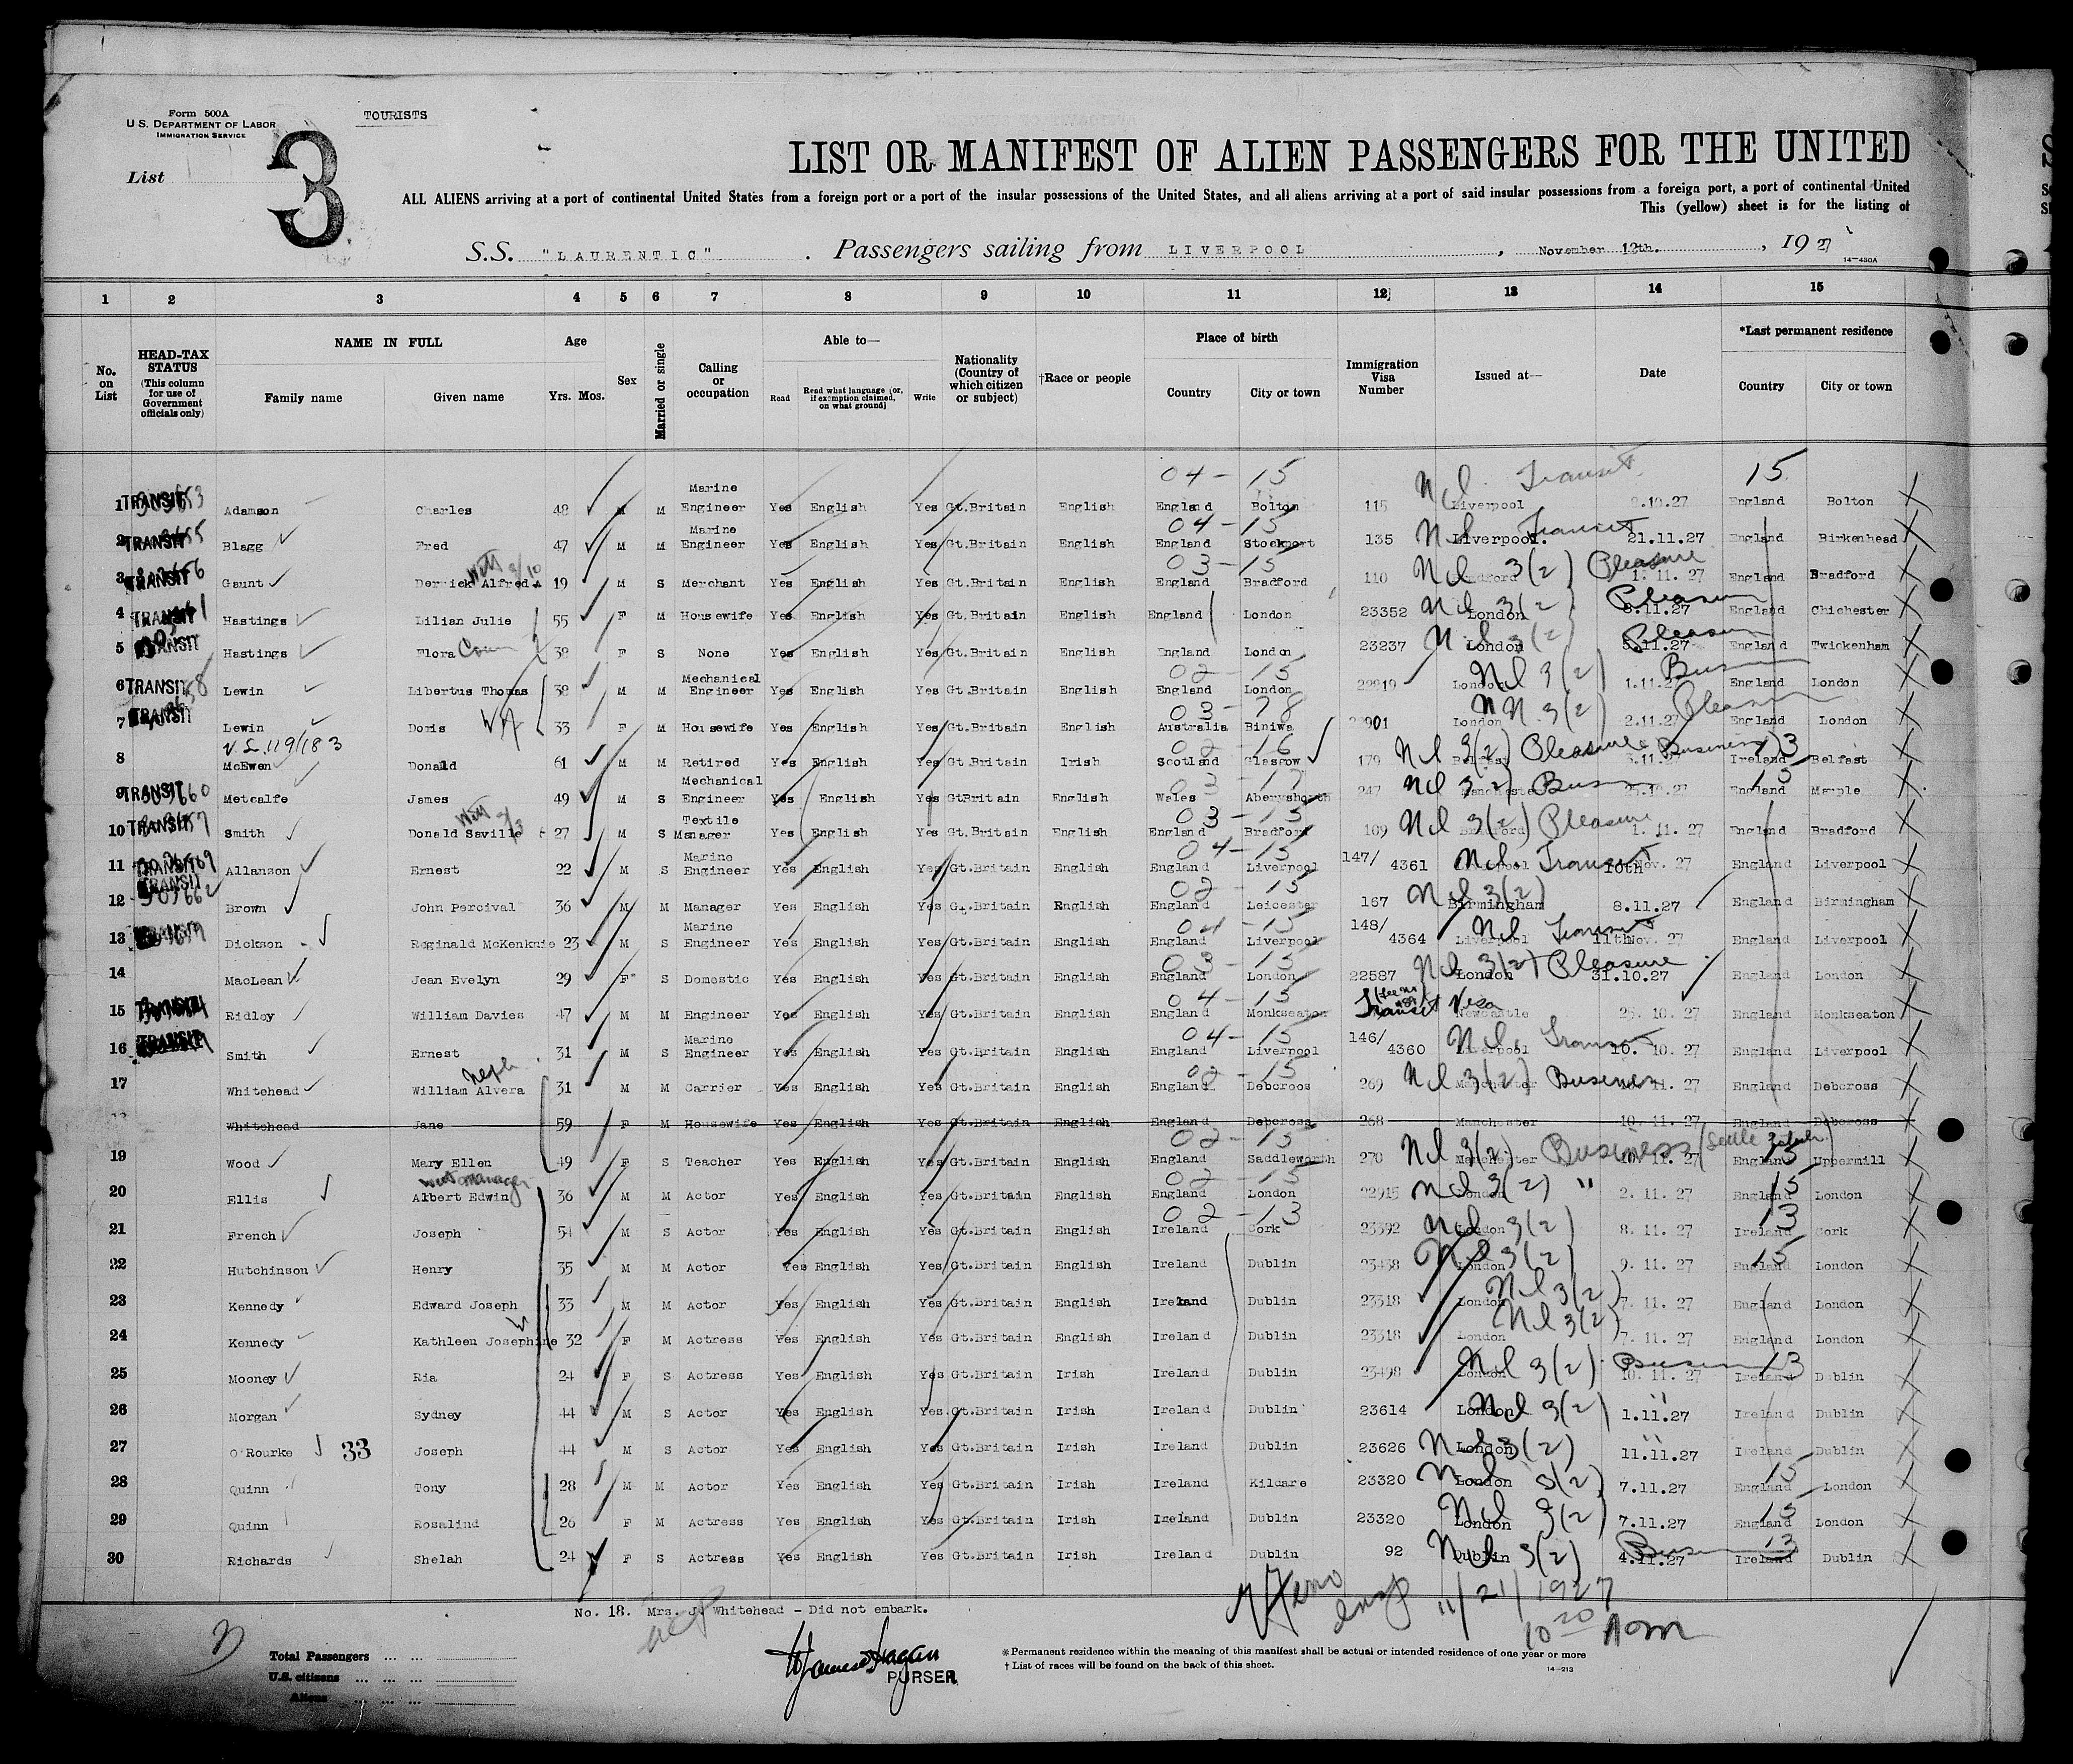 Form 500A
U.S. DEPARTMENT OF LABOR
IMMIGRATION SERVICE
TOURISTS
List 3
LIST OR MANIFEST OF ALIEN PASSENGERS FOR THE UNITED
ALL ALIENS arriving at a port of continental United States from a foreign port or a port of the insular possessions of the United States, and all aliens arriving at a port of said insular possessions from a foreign port, a port of continental United
This (yellow) sheet is for the listing of
S.S. "LAURENTIC" . Passengers sailing from LIVERPOOL , November 12th. , 1927
14-430A
1 2 3 4 5 6 7 8 9 10 11 12 13 14 15
No. on List
HEAD-TAX STATUS (This column for use of Government officials only)
NAME IN FULL
Family name Given name
Age Yrs. Mos.
Sex
Married or single
Calling or occupation
Able to— Read Read what language (or, if exemption claimed, on what ground) Write
Nationality (Country of which citizen or subject)
†Race or people
Place of birth Country City or town
Immigration Visa Number
Issued at—
Date
*Last permanent residence Country City or town
1 TRANSIT Adamson Charles 48 M M Marine Engineer Yes English Yes Gt.Britain English England Bolton 04-15 115 Liverpool Nl. Transit 15 England Bolton
2 TRANSIT Blagg Fred 47 M M Marine Engineer Yes English Yes Gt.Britain English England Stockport 04-15 135 Liverpool. Transit 21.11.27 England Birkenhead
3 TRANSIT Gaunt Derrick Alfred 19 M S Merchant Yes English Yes Gt.Britain English England Bradford 03-15 110 Nl 3(2) Pleasure 1.11.27 England Bradford
4 TRANSIT Hastings Lilian Julie 55 F M Housewife Yes English Yes Gt.Britain English England London 23352 London Nl 3(2) Pleasure England Chichester
5 TRANSIT Hastings Flora F S None Yes English Yes Gt.Britain English England London 23237 London Nl 3(2) Pleasure England Twickenham
6 TRANSIT Lewin Libertus Thomas 38 M M Mechanical Engineer Yes English Yes Gt.Britain English England London 02-15 London Nl 3(2) England London
7 TRANSIT Lewin Doris W 33 F M Housewife Yes English Yes Gt.Britain English Australia Biniwa 03-28 London 3(2) Pleasure 2.11.27 England London
V.L. 119/183
8 McEwen Donald 61 M M Retired Yes English Yes Gt.Britain Irish Scotland Glasgow 02-16 179 Nl 3(2) Pleasure Business 13 Ireland Belfast
9 TRANSIT Metcalfe James 49 M S Mechanical Engineer Yes English Yes GtBritain English Wales 03-17 247 Manchester Nl 3(2) 15 England Marple
10 TRANSIT Smith Donald Saville 27 M S Textile Manager Yes English Yes Gt.Britain English England Bradford 03-15 109 Nl 3(2) Pleasure 1.11.27 England Bradford
11 TRANSIT Allanson Ernest 22 M S Marine Engineer Yes English Yes Gt.Britain English England Liverpool 04-15 147/ 4361 Nl. Transit 10th Nov. 27 England Liverpool
12 TRANSIT Brown John Percival 36 M M Manager Yes English Yes Gt.Britain English England Leicester 02-15 167 Birmingham Nl 3(2) 8.11.27 England Birmingham
13 Dickson Reginald McKenknie 23 M S Marine Engineer Yes English Yes Gt.Britain English England Liverpool 04-15 148/ 4364 Liverpool Nl Transit 11th Nov. 27 England Liverpool
14 MacLean Jean Evelyn 29 F S Domestic Yes English Yes Gt.Britain English England London 03-15 22587 London Nl 3(2) Pleasure 31.10.27 England London
15 TRANSIT Ridley William Davies 47 M M Engineer Yes English Yes Gt.Britain English England Monkseaton 04-15 Transit Visa Newcastle 10.27 England Monkseaton
16 TRANSIT Smith Ernest 31 M S Marine Engineer Yes English Yes Gt.Britain English England Liverpool 04-15 146/ 4360 Liverpool Nl. Transit 10.10.27 England Liverpool
17 Whitehead William Alvera Neph 31 M M Carrier Yes English Yes Gt.Britain English England Debcross 02-15 269 Manchester Nl 3(2) Business 11.27 England Debcross
Whitehead Jane 59 F M Housewife Yes English Yes Gt.Britain English England Debcross 268 Manchester 10.11.27 England Debcross
19 Wood Mary Ellen 49 F S Teacher Yes English Yes Gt.Britain English England Saddleworth 02-15 270 Manchester Nl 3(2) Business 11.27 England Uppermill
20 Ellis Albert Edwin Manager 36 M M Actor Yes English Yes Gt.Britain English England London 02-15 22915 London Nl 3(2) " 2.11.27 15 England London
21 French Joseph 54 M S Actor Yes English Yes Gt.Britain English Ireland Cork 02-13 23392 London Nl 3(2) 8.11.27 13 Ireland Cork
22 Hutchinson Henry 35 M M Actor Yes English Yes Gt.Britain English Ireland Dublin 23438 London Nl 3(2) 9.11.27 15 England London
23 Kennedy Edward Joseph 33 M M Actor Yes English Yes Gt.Britain English Ireland Dublin 23318 London Nl 3(2) 7.11.27 England London
24 Kennedy Kathleen Josephine W 32 F M Actress Yes English Yes Gt.Britain English Ireland Dublin 23318 London Nl 3(2) 7.11.27 England London
25 Mooney Ria 24 F S Actress Yes English Yes Gt.Britain Irish Ireland Dublin 23498 London Nl 3(2) 10.11.27 13 Ireland Dublin
26 Morgan Sydney 44 M S Actor Yes English Yes Gt.Britain Irish Ireland Dublin 23614 London Nl 3(2) " 1.11.27 Ireland Dublin
27 O'Rourke 33 Joseph 44 M S Actor Yes English Yes Gt.Britain Irish Ireland Dublin 23626 London Nl 3(2) " 11.11.27 Ireland Dublin
28 Quinn Tony 28 M M Actor Yes English Yes Gt.Britain Irish Ireland Kildare 23320 London Nl 3(2) 7.11.27 15 England London
29 Quinn Rosalind 26 F M Actress Yes English Yes Gt.Britain Irish Ireland Dublin 23320 London Nl 3(2) 7.11.27 15 England London
30 Richards Shelah 24 F S Actress Yes English Yes Gt.Britain Irish Ireland Dublin 92 Dublin Nl 3(2) 4.11.27 13 Ireland Dublin
No. 18. Mrs. J. Whitehead - Did not embark.
Insp 11/21/1927
10 20 AM
Total Passengers ... ...
U.S. citizens ... ... ...
Aliens ... ... ...
PURSER
*Permanent residence within the meaning of this manifest shall be actual or intended residence of one year or more
† List of races will be found on the back of this sheet.
14-213